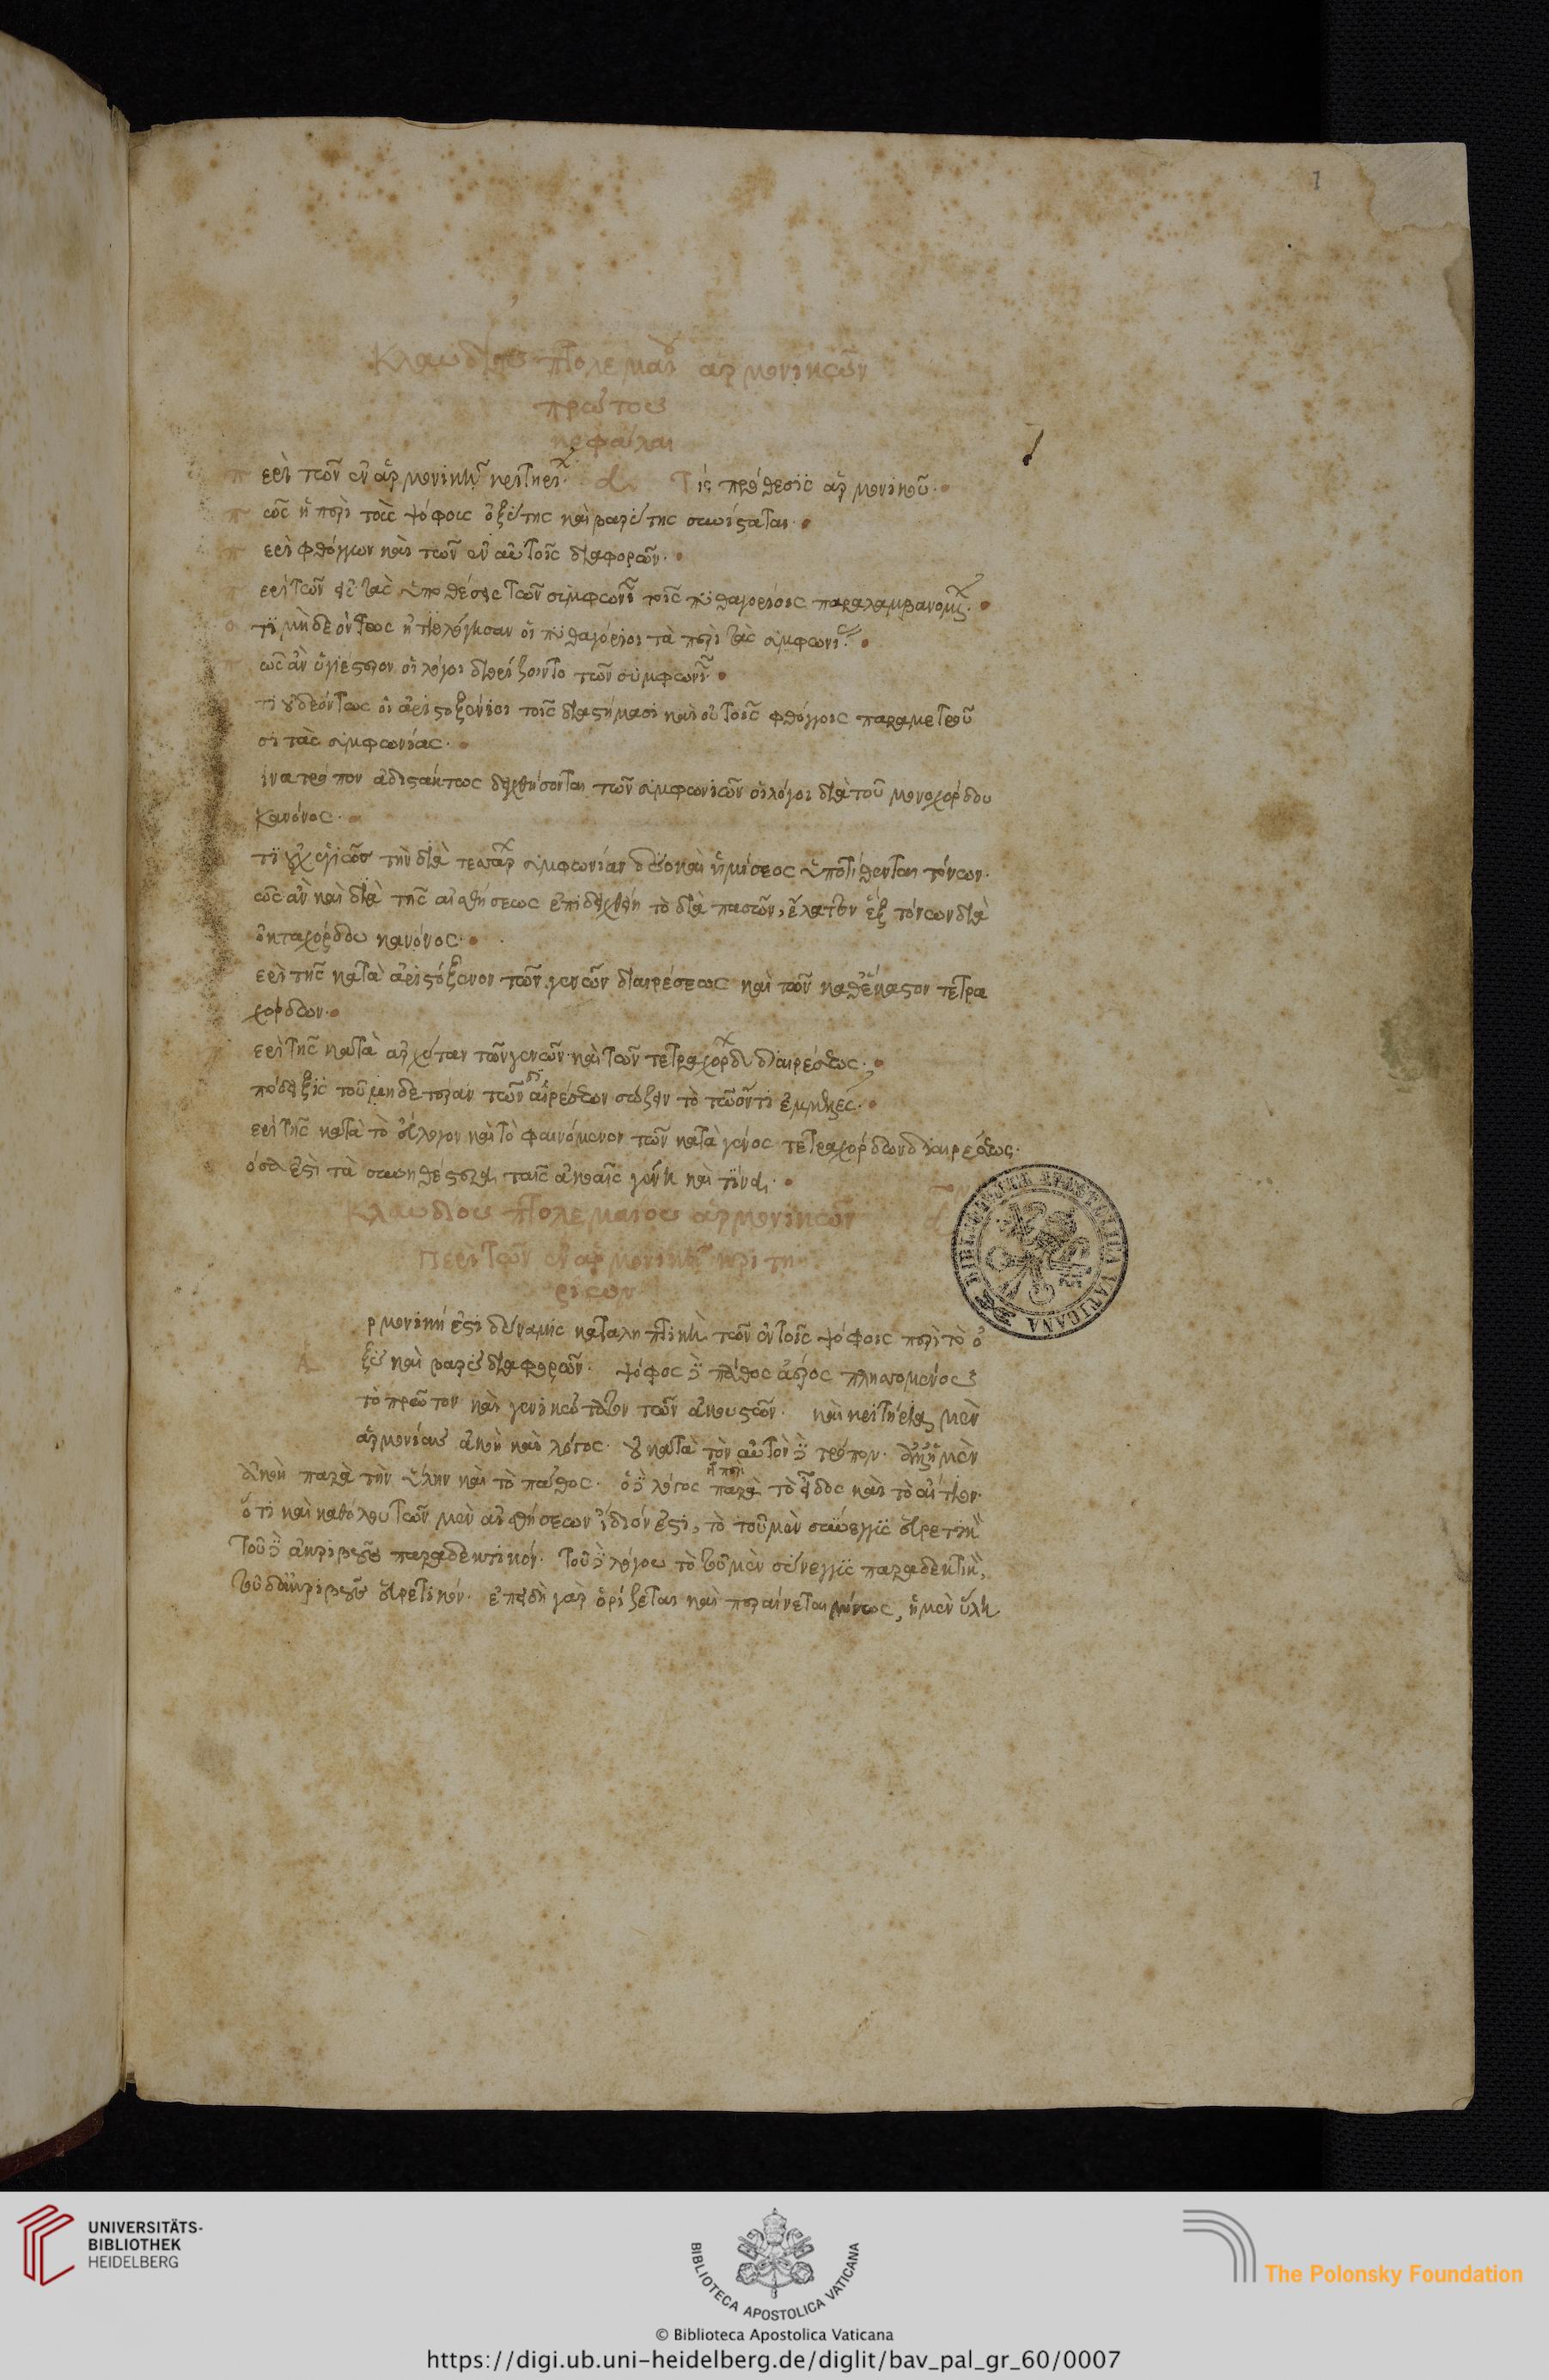 1
Κλαυδίου Πτολεμαίου ἁρμονικῶν
πρώτου
κεφάλαι
Περὶ τῶν ἐν ἁρμονικῇ κριτηρί α Τίς πρόθεσις ἁρμονικοῦ.
Πῶς ἡ περὶ τοὺς ψόφους ὀξύτης καὶ βαρύτης συνίσταται.
Περὶ φθόγγων καὶ τῶν ἐν αὐτοῖς διαφορῶν.
Περὶ τῶν εἰς τὰς ὑποθέσεις τῶν συμφωνιῶν τοῖς πυθαγορείοις παραλαμβανομ
Ὅτι μὴ δεόντως ἠτιολόγησαν οἱ πυθαγόρειοι τὰ περὶ τὰς συμφωνί
Πῶς ἂν ὑγιέστερον οἱ λόγοι διορίζοιντο τῶν συμφωνιῶν.
τι οὐ δεόντως οἱ ἀριστοξένειοι τοῖς διαστήμασι καὶ οὐ τοῖς φθόγγοις παραμετροῦ
σι τὰς συμφωνίας.
ίνα τρόπον ἀδιστάκτως δειχθήσονται τῶν συμφωνιῶν οἱ λόγοι διὰ τοῦ μονοχόρδου
κανόνος.
τι οὐχ ὑγιῶς τὴν διὰ τεσσάρ συμφωνίαν δύο καὶ ἡμίσεος ὑποτίθενται τόνων.
ῶς ἂν καὶ διὰ τῆς αἰσθήσεως ἐπιδειχθείη τὸ διὰ πασῶν, ἔλαττον ἓξ τόνων διὰ
ὀκταχόρδου κανόνος.
ερὶ τῆς κατὰ ἀριστόξενον τῶν γενῶν διαιρέσεως καὶ τῶν καθ' ἕκαστον τετρα
χόρδων.
ερὶ τῆς κατὰ ἀρχύταν τῶν γενῶν καὶ τῶν τετραχόρδ διαιρέσεως.
πόδειξις τοῦ μηδετέραν τῶν διαιρέσεων σώζειν τὸ τῷ ὄντι ἐμμελές.
ερὶ τῆς κατὰ τὸ εὔλογον καὶ τὸ φαινόμενον τῶν κατὰ γένος τετραχόρδων διαιρέσεως.
όσα ἐστὶ τὰ συνηθέστερα ταῖς ἀκοαῖς γένη καὶ τίνα.
Κλαυδίου Πτολεμαίου ἁρμονικῶν α
Περὶ τῶν ἐν ἁρμονικῇ κριτη
ρίων
Ἁρμονική ἐστι δύναμις καταληπτικὴ τῶν ἐν τοῖς ψόφοις περὶ τὸ ὀ
ξὺ καὶ βαρὺ διαφορῶν. ψόφος δὲ πάθος ἀέρος πλησσομένου
τὸ πρῶτον καὶ γενικώτατον τῶν ἀκουστῶν. καὶ κριτήρια μὲν
ἁρμονίας ἀκοὴ καὶ λόγος. οὐ κατὰ τὸν αὐτὸν δὲ τρόπον. ἀλλ' ἡ μὲν
ἀκοὴ παρὰ τὴν ὕλην καὶ τὸ πάθος. ὁ δὲ λόγος παρὰ τὸ εἶδος καὶ τὸ αἴτιον.
ὅτι καὶ καθόλου τῶν μὲν αἰσθήσεων ἴδιόν ἐστι, τὸ τοῦ μὲν σύνεγγυς εὑρετικὸν
τοῦ δὲ ἀκριβοῦς παραδεκτικόν. τοῦ δὲ λόγου τὸ τοῦ μὲν σύνεγγυς παραδεκτικὸν,
τοῦ δ' ἀκριβοῦς εὑρετικόν. ἐπειδὴ γὰρ ὁρίζεται καὶ περαίνεται μόνως, ἡ μὲν ὕλη
BIBLIOTECA APOSTOLICA VATICANA
UNIVERSITÄTS-
BIBLIOTHEK
HEIDELBERG
BIBLIOTECA APOSTOLICA VATICANA
The Polonsky Foundation
© Biblioteca Apostolica Vaticana
https://digi.ub.uni-heidelberg.de/diglit/bav_pal_gr_60/0007